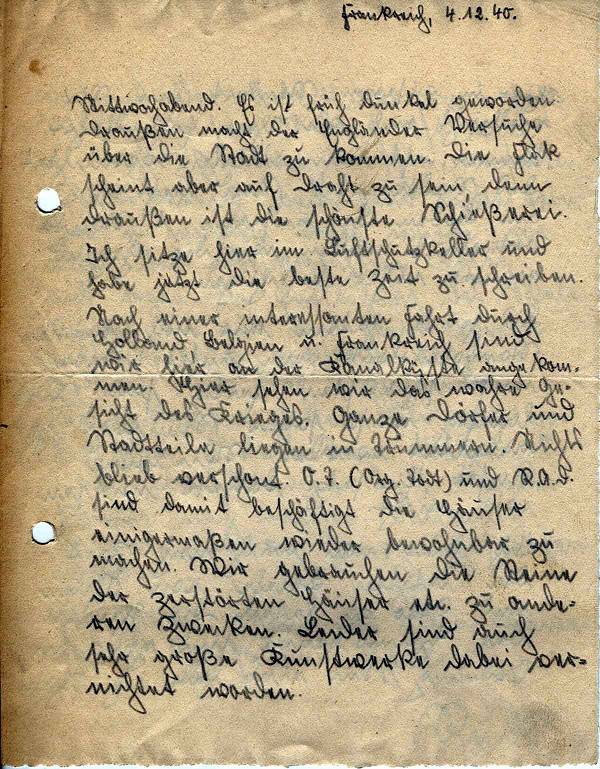 Frankreich, 4.12.40.
Mittwochabend. Es ist früh dunkel geworden
draußen macht der Engländer Versuche
über die Stadt zu kommen. Die Flak
scheint aber auf Draht zu sein, denn
draußen ist die schönste Schießerei.
Ich sitze hier im Luftschutzkeller und
habe jetzt die beste Zeit zu schreiben.
Nach einer interessanten Fahrt durch
Holland, Belgien u. Frankreich sind
wir hier an der Kanalküste angekom-
men. Hier sehen wir das wahre Ge-
sicht des Krieges. Ganze Dörfer und
Stadtteile liegen in Trümmern. Nichts
blieb verschont. O.T. (Org. Todt) und R.A.D.
sind damit beschäftigt die Häuser
einigermaßen wieder bewohnbar zu
machen. Wir gebrauchen die Steine
der zerstörten Häuser etc. zu ande-
ren Zwecken. Leider sind auch
sehr große Kunstwerke dabei ver-
nichtet worden.